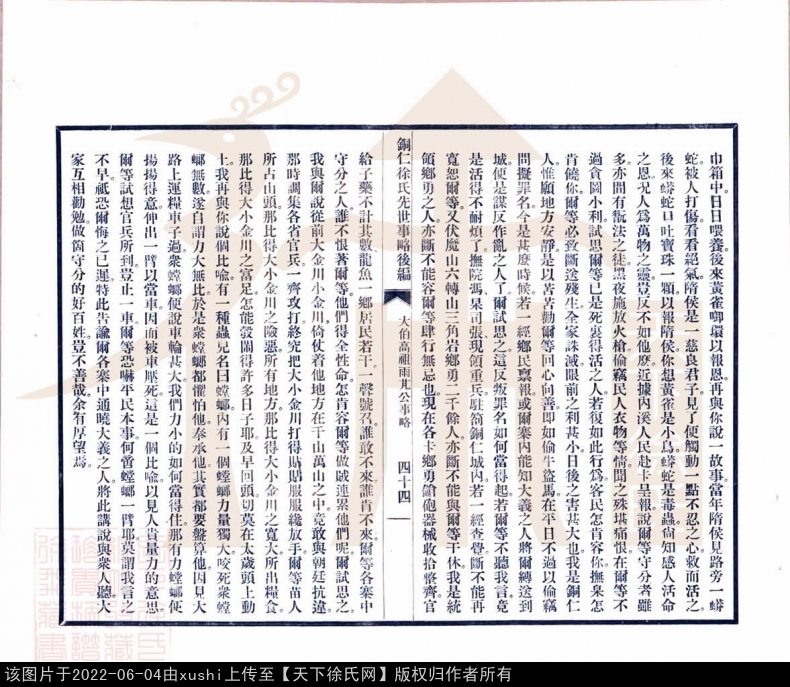 巾箱中日日喂養後來黃雀啣環以報恩再與你說一故事當年隋侯見路旁一蟒
蛇被人打傷看看絕氣隋侯是一慈良君子見了便觸動一點不忍之心救而活之
後來蟒蛇口吐寶珠一顆以報隋侯你想黃雀是小鳥蟒蛇是毒蟲尙知感人活命
之恩況人爲萬物之靈豈反不如他麽近據內溪人民赴卡呈報說爾等守分者雖
多亦間有翫法之徒黑夜施放火槍偷竊民人衣物等情聞之殊堪痛恨在爾等不
過貪圖小利試思爾等已是死裏得活之人若復如此行爲客民怎肯容你撫臬怎
肯饒你爾等必致斷送殘生全家誅滅眼前之利甚小日後之害甚大也我是銅仁
人惟願地方安靜是以苦苦勸爾等回心向善卽如偷牛盜馬在平日不過以偷竊
問擬罪名今是甚麽時候若一經鄉民禀報或爾寨內能知大義之人將爾縛送到
城便是謀反作亂之人了爾試思之這反叛罪名如何當得起若爾等不聽我言竟
是活得不耐煩了撫院馮臬司張現領重兵駐箚銅仁城內若一經查覺斷不能再
寬恕爾等又伏魔山六轉山三角岩鄉勇二千餘人亦斷不能與爾等干休我是統
領鄉勇之人亦斷不能容爾等肆行無忌也現在各卡鄉勇鎗砲器械收拾整齊官
銅仁徐氏先世事略後編 大伯高祖雨芃公事略 四十四
給子藥不計其數龍魚一鄉居民若干一聲號名誰敢不來誰肯不來爾等各寨中
守分之人誰不恨著爾等他們得全性命怎肯容爾等做賊連累他們呢爾試思之
我與爾說從前大金川小金川倚仗着他地方在千山萬山之中竟敢與朝廷抗違
那時調集各省官兵一齊攻打終究把大小金川打得貼貼服服纔放手爾等苗人
所占山頭那比得大小金川之險惡所有地方那比得大小金川之寬大所出糧食
那比得大小金川之富足怎能彀鬧得許多日子耶及早回頭切莫在太歲頭上動
土我再與你說個比喩有一種蟲兒名曰螳螂內有一個螳螂力量獨大咬死衆螳
螂無數遂自謂力大無比於是衆螳螂都懼怕他奉承他其實都要盤算他因見大
路上運糧車子過衆螳螂便說車輪甚大我們力小的如何當得住那有力螳螂便
揚揚得意伸出一臂以當車因而被車壓死這是一個比喩以見人貴量力的意思
爾等試想官兵所到豈止一車爾等恐嚇平民本事何啻螳螂一臂耶莫謂我言之
不早祇恐爾悔之已遲特此告諭爾各寨中通曉大義之人將此講說與衆人聽大
家互相勸勉做箇守分的好百姓豈不善哉余有厚望焉
该图片于2022-06-04由xushi上传至【天下徐氏网】版权归作者所有